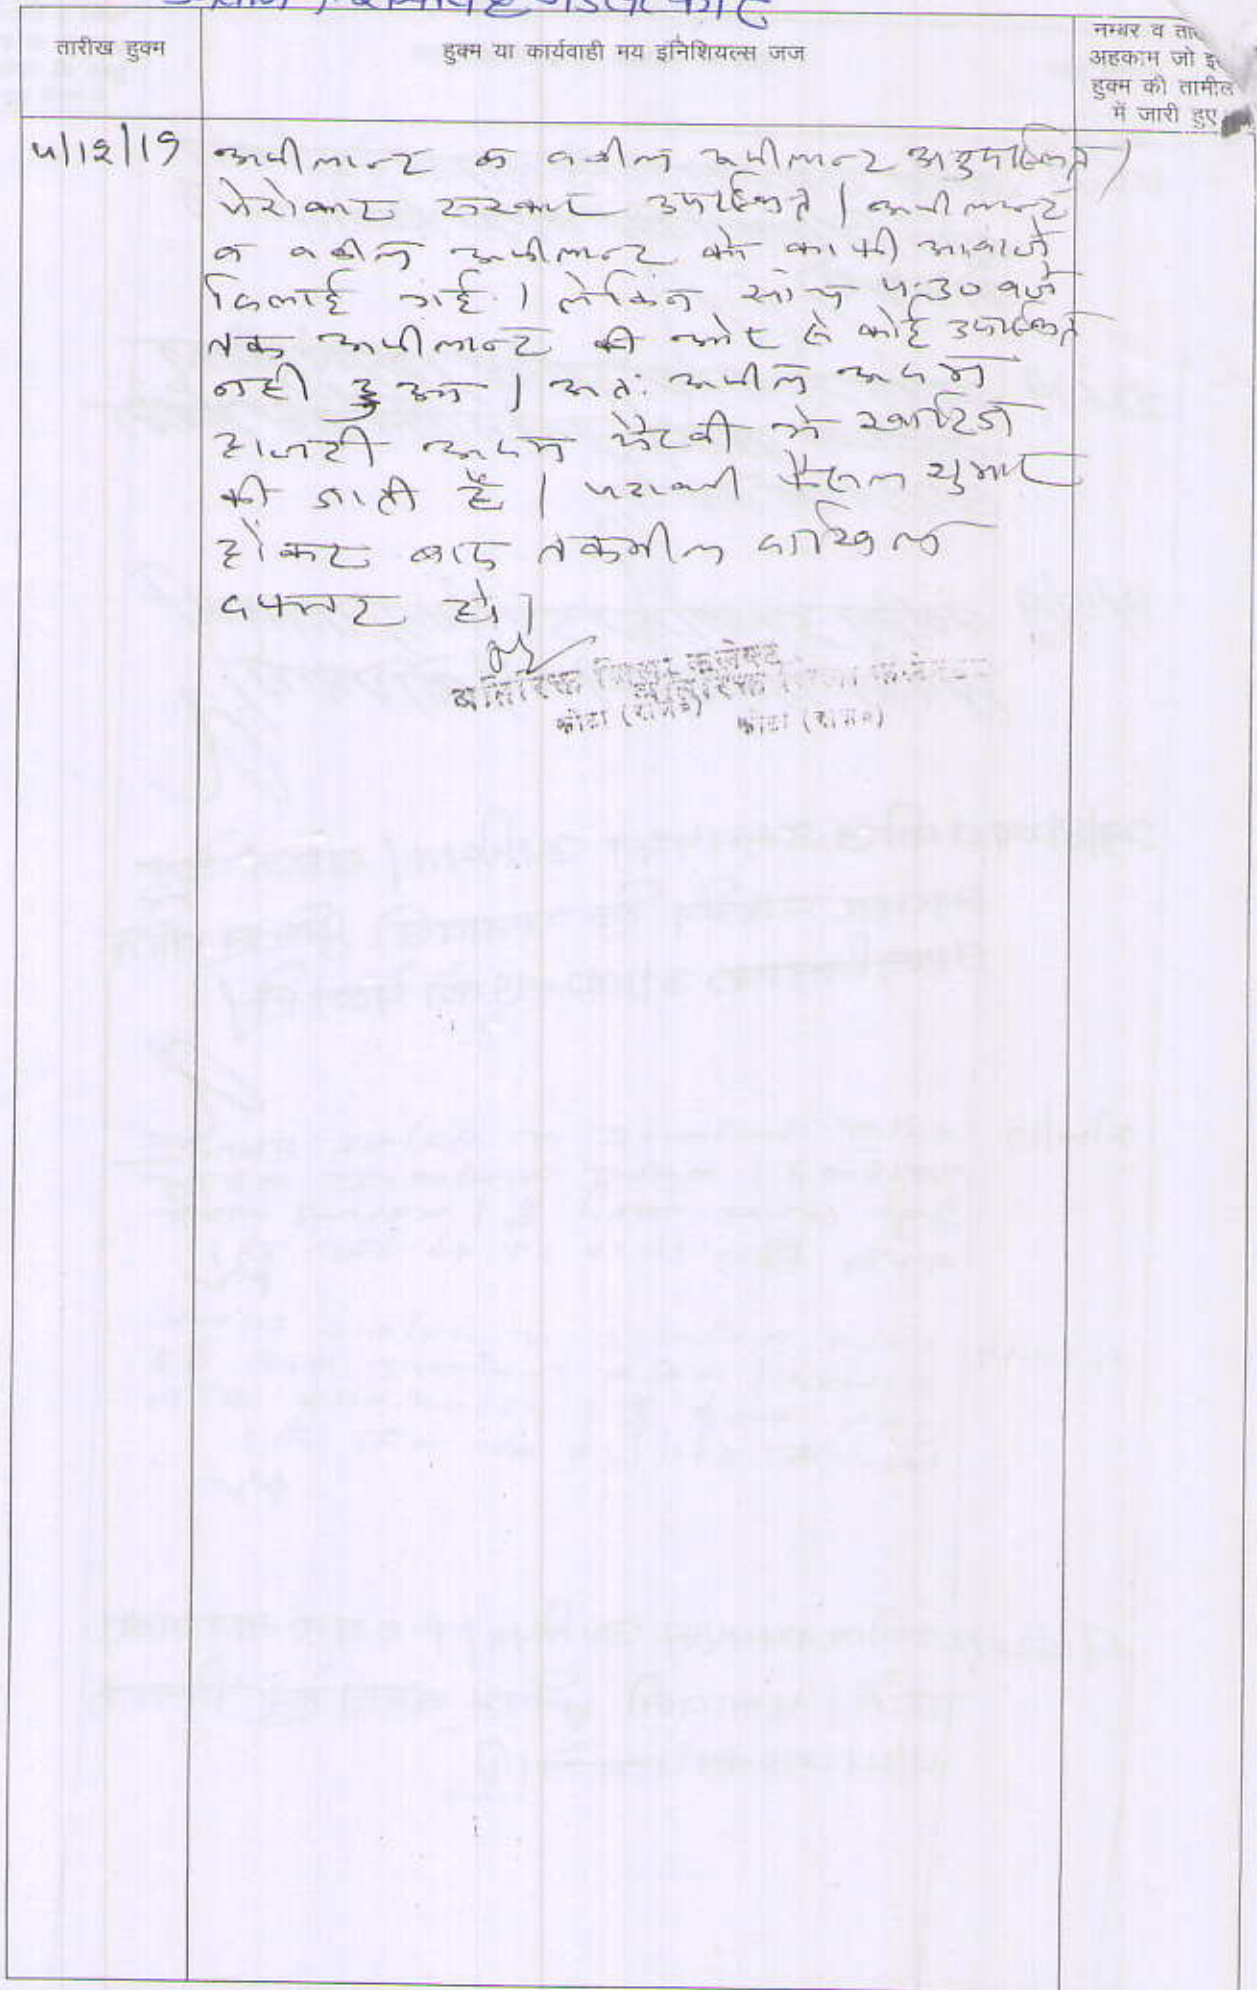 तारीख हुक्म
हुक्म या कार्यवाही मय इनिशियल्स जज
नम्बर व
अहकाम जो
हुक्म की तामील
में जारी हुए
अपीलान्ट व वकील अपीलान्ट अनुपस्थित।
पैरोकार सरकार उपस्थित। अपीलान्ट
व वकील अपीलान्ट को काफी आवाजें
दिलाई गई। लेकिन सांय 4:30 बजे
तक अपीलान्ट की ओर से कोई उपस्थित
नही हुआ। अतः अपील अदम
हाजरी अदम पैरवी में खारिज
की जाती है। पत्रावली फैसल शुमार
होकर बाद तकमील दाखिल
दफ्तर हो।
अतिरिक्त जिला कलेक्टर
अतिरिक्त जिला कलेक्टर
कोटा (राज०)
कोटा (राज०)